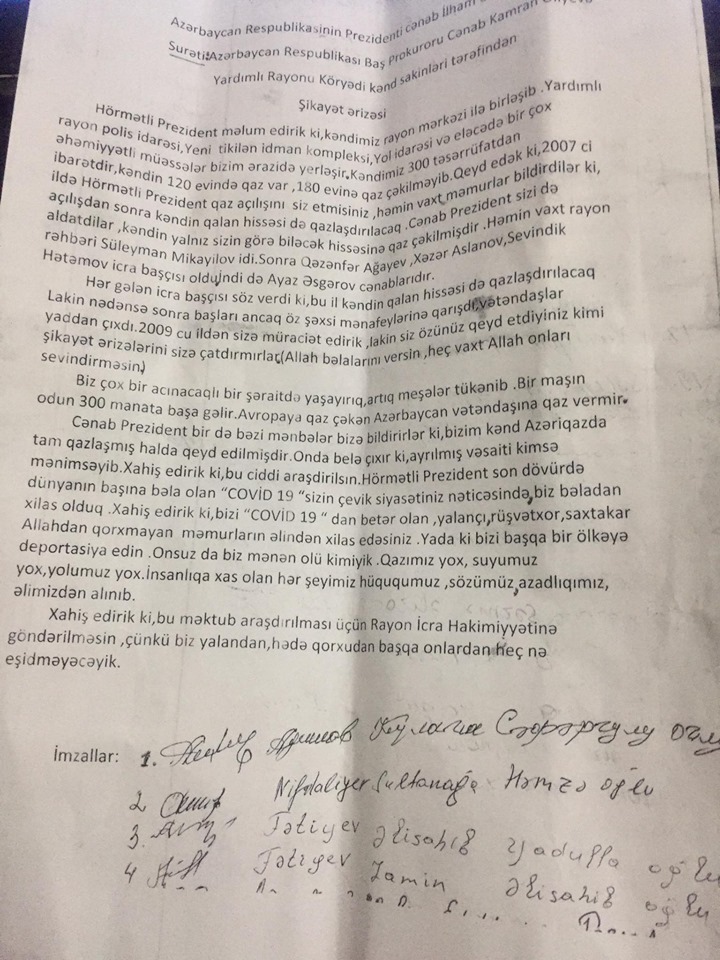 Azərbaycan Respublikasinin Prezidenti cənab İlham
Surəti:Azərbaycan Respublikası Baş Prokuroru Cənab Kamran
Yardımlı Rayonu Köryədi kənd sakinləri tərəfindən
Şikayət ərizəsi
Hörmətli Prezident məlum edirik ki,kəndimiz rayon mərkəzi ilə birləşib .Yardımlı
rayon polis idarəsi,Yeni tikilən idman kompleksi,Yol idarəsi və eləcədə bir çox
əhəmiyyətli müəssələr bizim ərazidə yerləşir.Kəndimiz 300 təsərrüfatdan
ibarətdir,kəndin 120 evində qaz var ,180 evinə qaz çəkilməyib.Qeyd edək ki,2007 ci
ildə Hörmətli Prezident qaz açılışını siz etmisiniz ,həmin vaxt məmurlar bildirdilər ki,
açılışdan sonra kəndin qalan hissəsi də qazlaşdırılacaq .Cənab Prezident sizi də
aldatdilar ,kəndin yalnız sizin görə biləcək hissəsinə qaz çəkilmişdir .Həmin vaxt rayon
rəhbəri Süleyman Mikayilov idi.Sonra Qəzənfər Ağayev ,Xəzər Aslanov,Sevindik
Hətəmov icra başçısı oldu,indi də Ayaz Əsgərov cənablarıdır.
Hər gələn icra başçısı söz verdi ki,bu il kəndin qalan hissəsi də qazlaşdırılacaq
Lakin nədənsə sonra başları ancaq öz şəxsi mənafeylərinə qarışdı,vətəndaşlar
yaddan çıxdı.2009 cu ildən sizə müraciət edirik ,lakin siz özünüz qeyd etdiyiniz kimi
şikayət ərizələrini sizə çatdırmırlar.(Allah bəlalarını versin ,heç vaxt Allah onları
sevindirməsin)
Biz çox bir acınacaqlı bir şəraitdə yaşayırıq,artıq meşələr tükənib .Bir maşın
odun 300 manata başa gəlir.Avropaya qaz çəkən Azərbaycan vətəndaşına qaz vermir.
Cənab Prezident bir də bəzi mənbələr bizə bildirirlər ki,bizim kənd Azəriqazda
tam qazlaşmış halda qeyd edilmişdir.Onda belə çıxır ki,ayrılmış vəsaiti kimsə
mənimsəyib.Xahiş edirik ki,bu ciddi araşdırılsın.Hörmətli Prezident son dövürdə
dünyanın başına bəla olan “COVİD 19 “sizin çevik siyasətiniz nəticəsində,biz bəladan
xilas olduq .Xahiş edirik ki,bizi “COVİD 19 “ dan betər olan ,yalançı,rüşvətxor,saxtakar
Allahdan qorxmayan məmurların əlindən xilas edəsiniz .Yada ki bizi başqa bir ölkəyə
deportasiya edin .Onsuz da biz mənən olü kimiyik .Qazımız yox, suyumuz
yox,yolumuz yox.İnsanlıqa xas olan hər şeyimiz hüququmuz ,sözümüz,azadlıqımız,
əlimizdən alınıb.
Xahiş edirik ki,bu məktub araşdırılması üçün Rayon İcra Hakimiyyətinə
göndərilməsin ,çünkü biz yalandan,hədə qorxudan başqa onlardan heç nə
eşidməyəcəyik.
İmzallar: 1.
2 Sultanağa Həmzə oğlu
3. Fətiyev Əlisahib Yadulla oğlu
4 Fətiyev Zamin Əlisahib oğlu